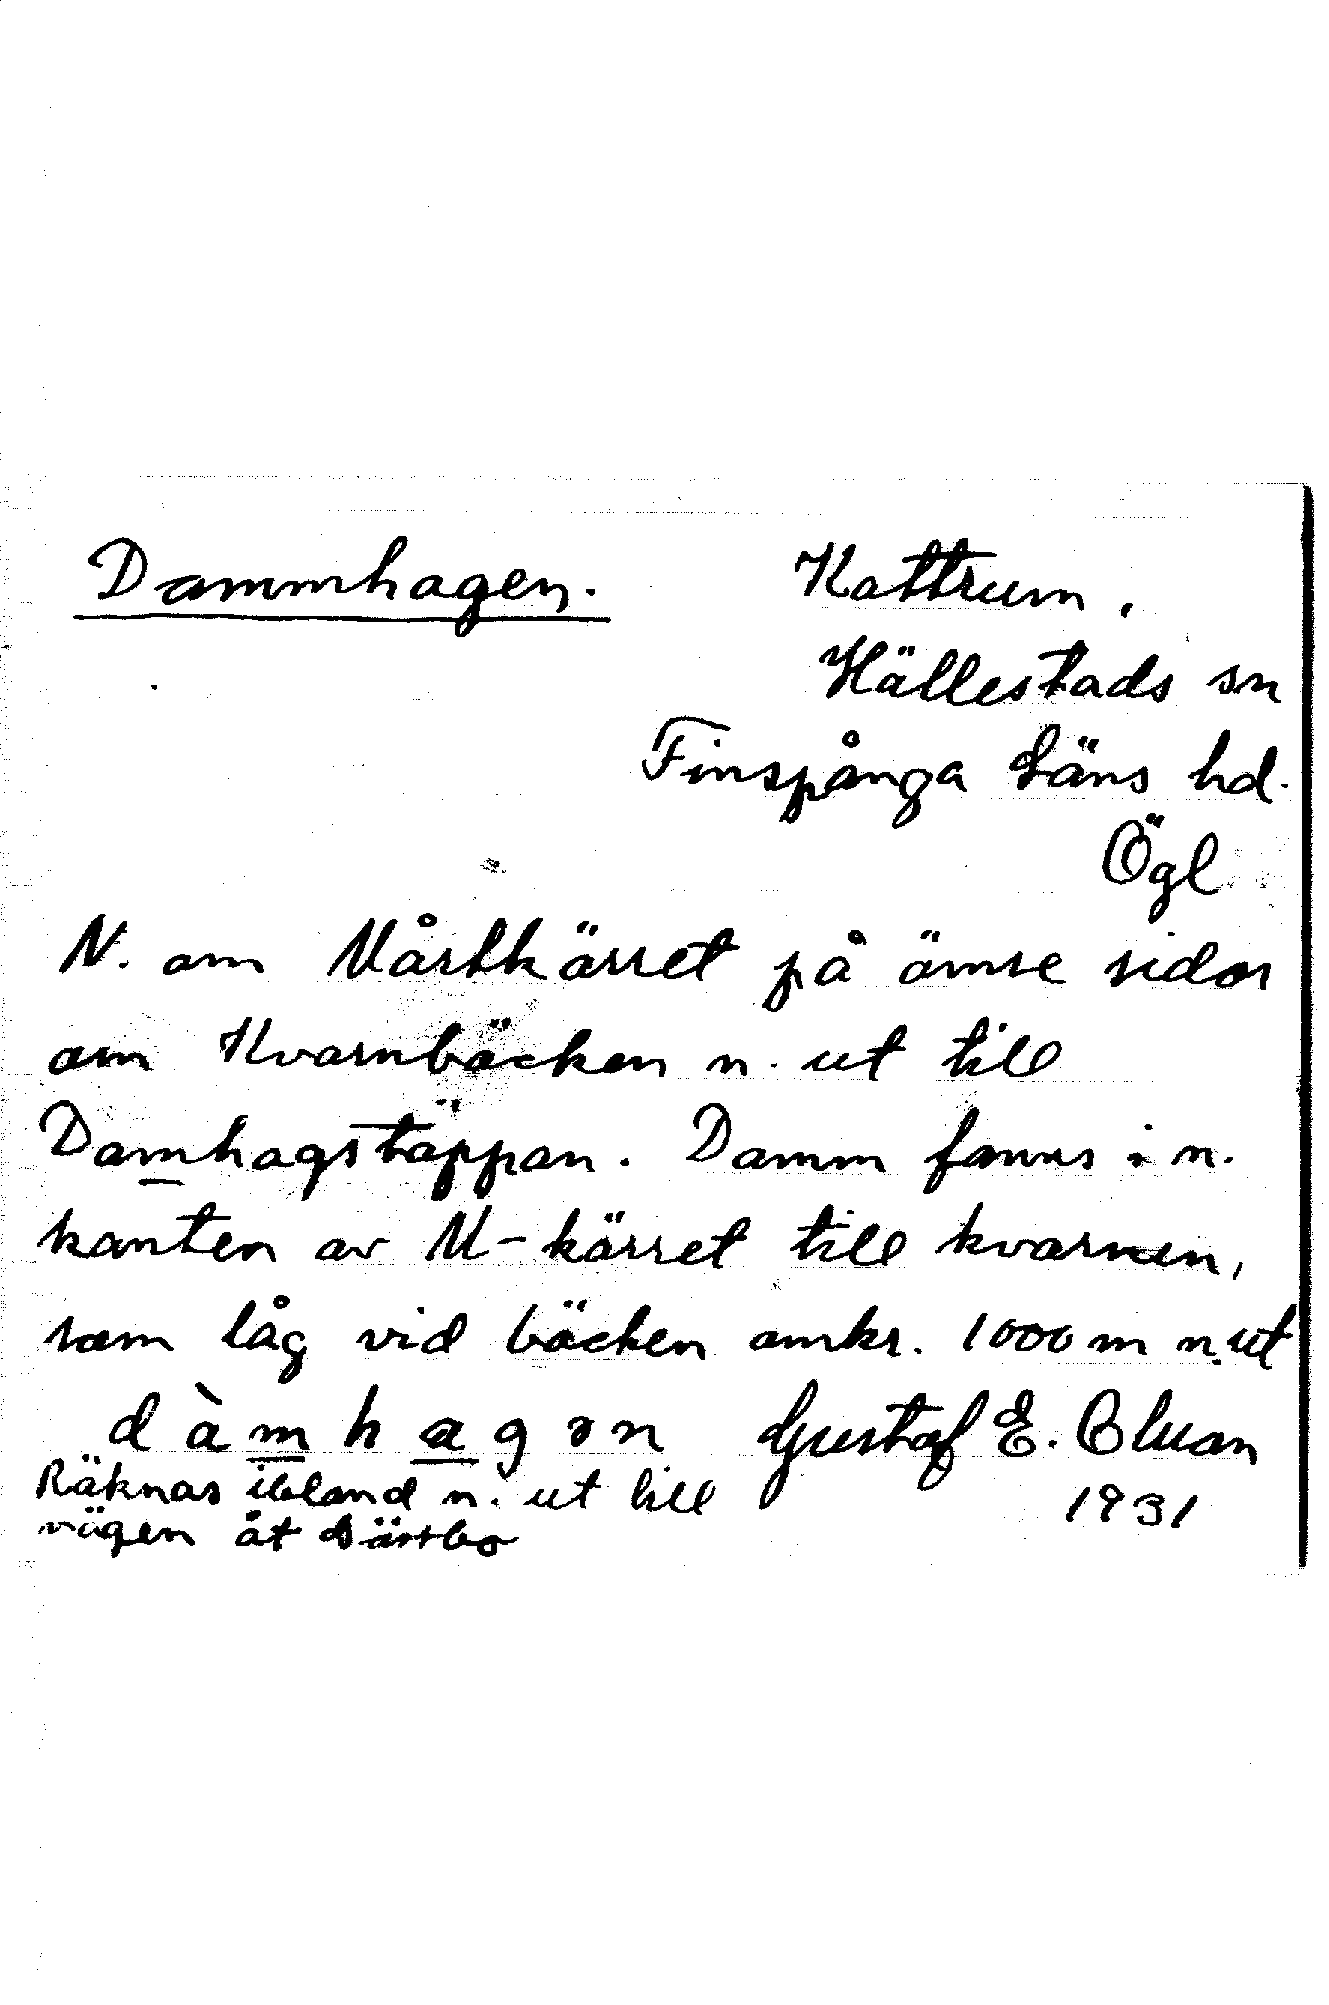 Dammhagen. Kattrum,
Hällestads sn
Finspånga läns hd.
Ögl
N. om på ömse sidor
om Kvarnbäcken n. ut till
Damhagstäppan. Damm fanns i n.
kanten av M-kärret till kvarnen,
som låg vid bäcken omkr. 1000 m n. ut
dàmhagən Gustaf E.
Räknas ibland n. ut till 1931
vägen åt